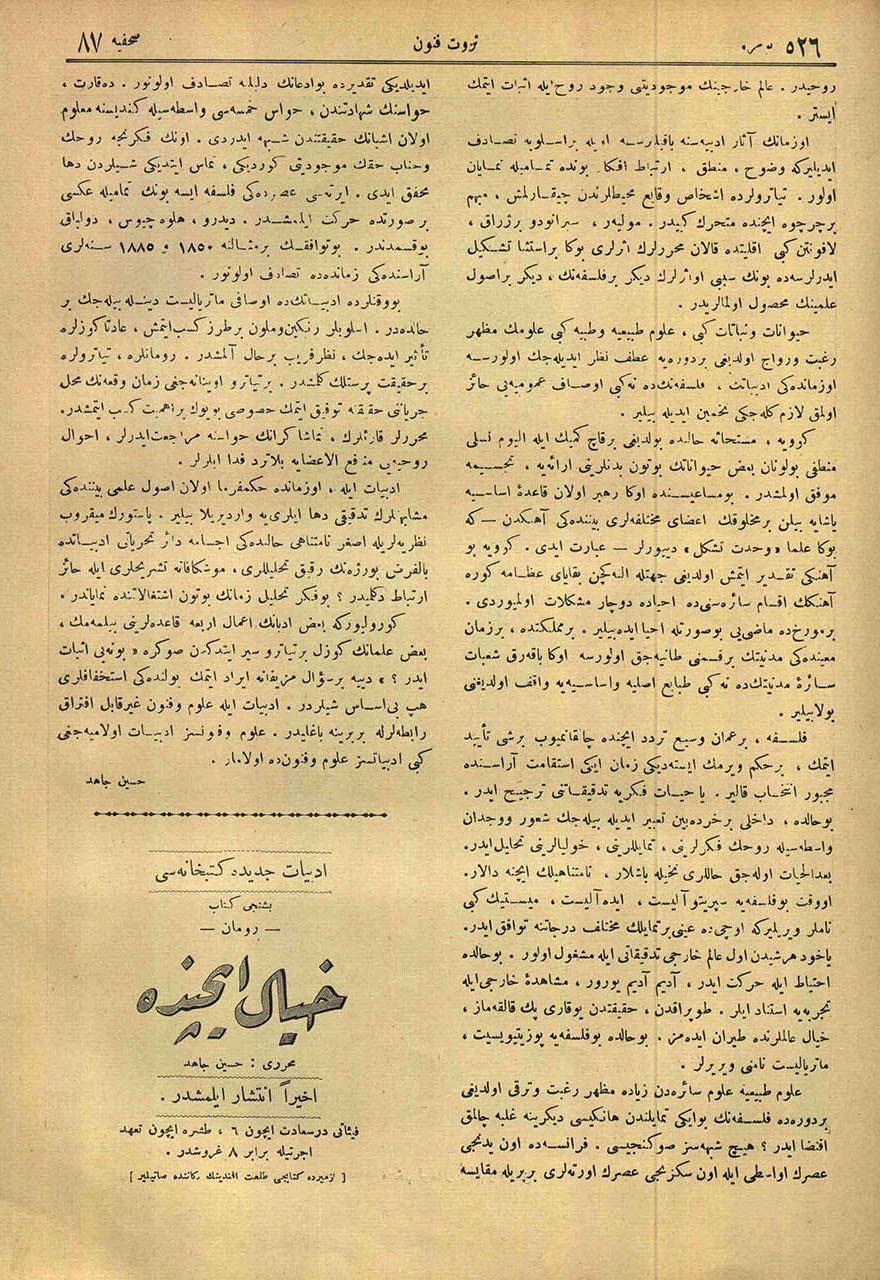 صحفیه ٨٧
ثروت فنون
نومرو ٥٢٦
روحیدر . عالم خارجینك موجودیتی وجود روح ایله اثبات ایتمك
ایستر .
اوزمانك آثار ادبیه‌سنه باقیلیرسه اویله براسلوبه تصادف
ایدیلیركه وضوح ، منطق ، ارتباط افكار بونده تمامیله نمایان
اولور . تیاترولرده اشخاص وقایع محیطلرندن چیقارلمش ، مبهم
برچرچوه ایچنده متحرك كبیدر . مولیه‌ر ، سیرانودو برژراق ،
لافونتن كبی اقلیتده قالان محررلرك اثرلری بوكا براستثنا تشكیل
ایدرلرسه‌ده بونك سببی اواثرلرك دیكر برفلسفه‌نك ، دیكر براصول
علمینك محصولی اولمالریدر .
حیوانات ونباتات كبی ، علوم طبیعیه وطبیه كبی علومك مظهر
رغبت ورواج اولدیغی بردوره‌یه عطف نظر ایدیله‌جك اولورسه
اوزمانده‌كی ادبیاتك ، فلسفه‌نك‌ده نه‌كبی اوصاف عمومیه‌یی حائز
اولمق لازم كله‌جكی تخمین ایدیله بیلیر .
كوویه ، مستحاثه حالنده بولدیغی برقاچ كمیك ایله الیوم نسلی
منطفی بولونان بعض حیواناتك بوتون بدنلرینی ارائه‌یه ، تجسیمه
موفق اولمشدر . بومساعیسنده اوكا رهبر اولان قاعدۀ اساسیه
یاشایه بیلن برمخلوقك اعضای مختلفه‌لری بیننده‌كی آهنكدن — كه
بوكا علما « وحدت تشكل » دییورلر — عبارت ایدی . كوویه بو
آهنكی تقدیر ایتمش اولدیغی جهتله الده كچن بقایای عظامه كوره
آهنكك اقسام سائره‌سنی‌ده احیاده دوچار مشكلات اولمیوردی .
برمورخ‌ده ماضی‌یی بوصورتله احیا ایده‌بیلیر . برمملكتده ، برزمان
معینده‌كی مدنیتك برقسمنی طانیه‌جق اولورسه اوكا باقه‌رق شعبات
سائرۀ مدنیتك‌ده نه كبی طبایع اصلیه واساسیه‌یه واقف اولدیغنی
بولابیلیر .
فلسفه ، برعمان وسیع تردد ایچنده چالقانمیوب برشی تأیید
ایتمك ، برحكم ویرمك ایسته‌دیكی زمان ایكی استقامت آراسنده
مجبور انتخاب قالیر . یا حیات فكریه تدقیقاتنی ترجیح ایدر .
بوحالده ، داخلی برخرده‌بین تعبیر ایدیله بیله‌جك شعور ووجدان
واسطه‌سیله روحك فكرلرینی ، تمایللرینی ، خولیالرینی تحلیل ایدر.
بعدالحیات اوله‌جق حاللری تخیله باشلار ، نامتناهیلك ایچنه دالار.
اووقت بوفلسفه‌یه سپریتوآلیست ، ایده‌آلیست ، میستیك كبی
ناملر ویریلیركه اوچی‌ده عینی برتمایلك مختلف درجاتنه توافق ایدر.
یاخود هرشیدن اول عالم خارجی تدقیقاتی ایله مشغول اولور . بوحالده
احتیاط ایله حركت ایدر ، آدیم آدیم یورور ، مشاهدۀ خارجی‌ایله
تجربه‌یه استناد ایلر . طوپراقدن ، حقیقتدن یوقاری پك قالقه‌ماز ،
خیال عالملرنده طیران ایده‌مز . بوحالده بوفلسفه‌یه پوزیتیویست ،
ماتریالیست نامنی ویریرلر .
علوم طبیعیه علوم سائره‌دن زیاده مظهر رغبت وترقی اولدیغی
بردوره‌ده فلسفه‌نك بوایكی تمایلندن هانكیسی دیكرینه غلبه چالمق
اقتضا ایدر ؟ هیچ شبهه‌سز صوكنجیسی . فرانسه‌ده اون یدنجی
عصرك اواسطی ایله اون سكزنجی عصرك اورته‌لری بربریله مقایسه
ایدیلدیكی تقدیرده بوادعانك دلیلنه تصادف اولونور . ده‌قارت ،
حواسنك شهادتندن ، حواس خمسه‌سی واسطه‌سیله كندیسنه معلوم
اولان اشیانك حقیقتندن شبهه ایدردی . اونك فكرنجه روحك
وجناب حقك موجودیتی كوردیكی ، تماس ایتدیكی شیلردن دها
محقق ایدی . ایرتسی عصرده‌كی فلسفه ایسه بونك تمامیله عكسی
برصورتده حركت ایلمشدر . دیدرو ، هلوه‌چیوس ، دولباق
بوقسمدندر . بوتوافقك برمثالنه ١٨٥٠ و ١٨٨٥ سنه‌لری
آراسنده‌كی زمانده‌ده تصادف اولونور .
بووقتلرده ادبیاتك‌ده اوصافی ماتریالیست دینیله بیله‌جك بر
حالده‌در . اسلوبلر رنكین‌وملون برطرز كسب ایتمش ، عادتا كوزلره
تأثیر ایده‌جك ، نظرفریب برحال آلمشدر . رومانلره ، تیاترولره
برحقیقت پرستلك كلمشدر . برتیاترو اوینانه‌جغی زمان وقعه‌نك محل
جریاننی حقیقته توفیق ایتمك خصوصی بویوك براهمیت كسب ایتمشدر.
محررلر قارئلرك ، تماشاكرانك حواسنه مراجعت‌ایدرلر ، احوال
روحیه‌یی منافع الاعضایه بلاتردد فدا ایلرلر .
ادبیات ایله ، اوزمانده حكمفرما اولان اصول علمی بیننده‌كی
مشابهتلرك تدقیقی دها ایلری‌یه واردیریلا بیلیر . پاستورك میقروب
نظریه‌لریله اصغر نامتناهی حالنده‌كی اجسامه دائر تحریاتی ادبیاتده
بالفرض بورژه‌نك رقیق تحلیللری ، موشكافانه تشریحلری ایله حائز
ارتباط دكلمیدر ؟ بوفكر تحلیل زمانك بوتون اشتغالاتنده نمایاندر .
كورولیوركه بعض ادبانك اعمال اربعه قاعده‌لرینی بیلمه‌مك ،
بعض علمانك كوزل برتیاترو سیر ایتدكدن صوكره « بونه‌یی اثبات
ایدر ؟ » دییه برسؤال مزیفانه ایراد ایتمك یولنده‌كی استخفافلری
هپ بی‌اساس شیلردر . ادبیات ایله علوم وفنون غیرقابل افتراق
رابطه‌لرله بربرینه باغلیدر . علوم وفنونسز ادبیات اولامیه‌جغی
كبی ادبیاتسز علوم وفنون‌ده اولاماز .
حسین جاهد
ادبیات جدیده كتبخانه‌سی
بشنجی كتاب
— رومان —
خیال ایچنده
محرری : حسین جاهد
اخیراً انتشار ایلمشدر .
فیئاتی درسعادت ایچون ٦ ، طشره ایچون تعهد
اجرتیله برابر ٨ غروشدر .
[ ازمیرده كتابجی طلعت افندینك دكاننده صاتیلیر ]